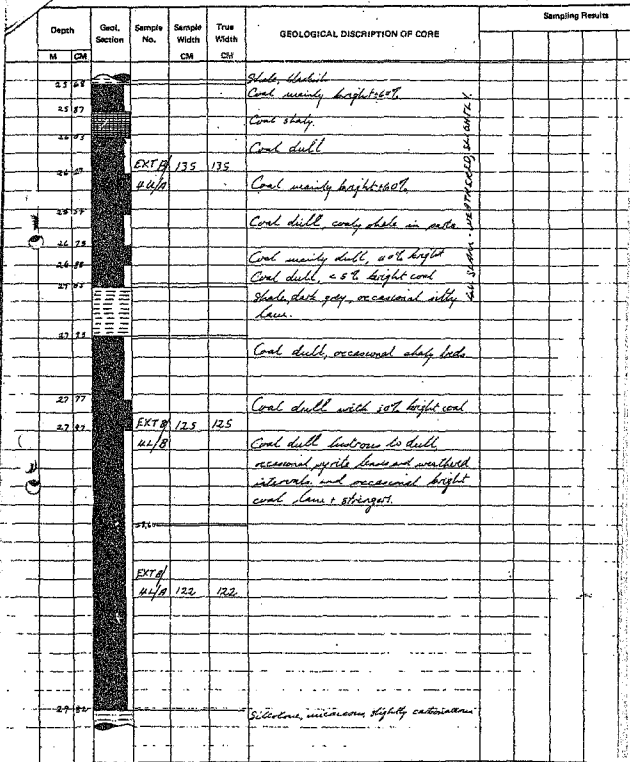 Sampling Results
Depth Geol. Section Sample No. Sample Width True Width GEOLOGICAL DISCRIPTION OF CORE
M CM CM CM
25 68 Shale, blackish
Coal mainly bright >60%
25 87
Coal shaly.
Coal dull
EXT B/ 135 135
4U/A Coal mainly bright >60%
Coal dull, coaly shale in parts
26 75
Coal mainly dull, 40% bright
26 88
Coal dull, <5% bright coal
Shale, dark grey, occasional silty
lam.
Coal dull, occasional shaly beds
27 77
Coal dull with 30% bright coal
27 97 EXT B/ 125 125
4L/B Coal dull lustrous to dull,
occasional pyrite lenses and weathered
intervals and occasional bright
coal lam + stringers.
EXT B/
4L/A 122 122
Siltstone, micaceous, slightly carbonaceous
SEAM - WEATHERED, SLIGHTLY